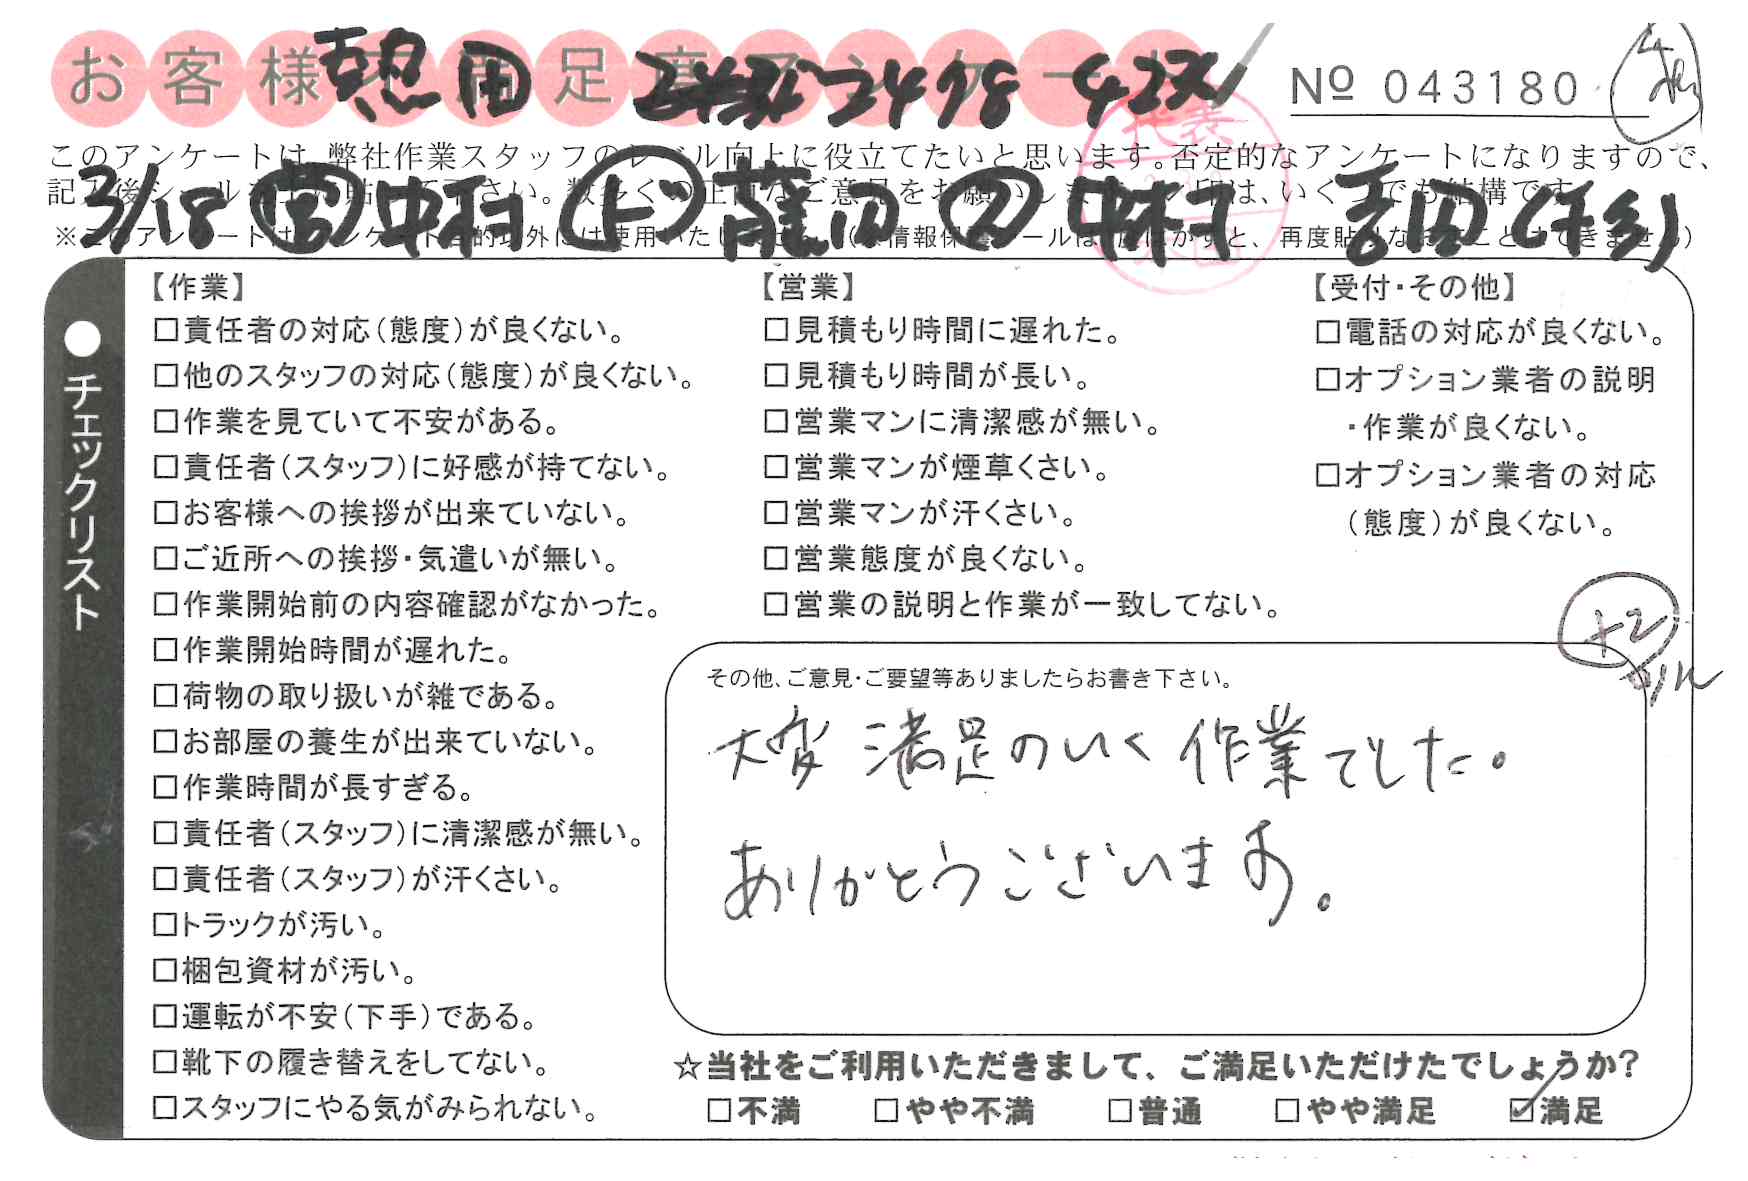 お客様不満足度アンケート
憩田 2478 42次
Nº 043180
このアンケートは、弊社作業スタッフのレベル向上に役立てたいと思います。否定的なアンケートになりますので、
3/18 営 中村 ド 藤田 中村 吉田(杉)
代表
●チェックリスト
【作業】
□責任者の対応(態度)が良くない。
□他のスタッフの対応(態度)が良くない。
□作業を見ていて不安がある。
□責任者(スタッフ)に好感が持てない。
□お客様への挨拶が出来ていない。
□ご近所への挨拶・気遣いが無い。
□作業開始前の内容確認がなかった。
□作業開始時間が遅れた。
□荷物の取り扱いが雑である。
□お部屋の養生が出来ていない。
□作業時間が長すぎる。
□責任者(スタッフ)に清潔感が無い。
□責任者(スタッフ)が汗くさい。
□トラックが汚い。
□梱包資材が汚い。
□運転が不安(下手)である。
□靴下の履き替えをしてない。
□スタッフにやる気がみられない。
【営業】
□見積もり時間に遅れた。
□見積もり時間が長い。
□営業マンに清潔感が無い。
□営業マンが煙草くさい。
□営業マンが汗くさい。
□営業態度が良くない。
□営業の説明と作業が一致してない。
【受付・その他】
□電話の対応が良くない。
□オプション業者の説明
・作業が良くない。
□オプション業者の対応
(態度)が良くない。
+2
その他、ご意見・ご要望等ありましたらお書き下さい。
大変満足のいく作業でした。
ありがとうございます。
☆当社をご利用いただきまして、ご満足いただけたでしょうか?
□不満 □やや不満 □普通 □やや満足 ☑満足